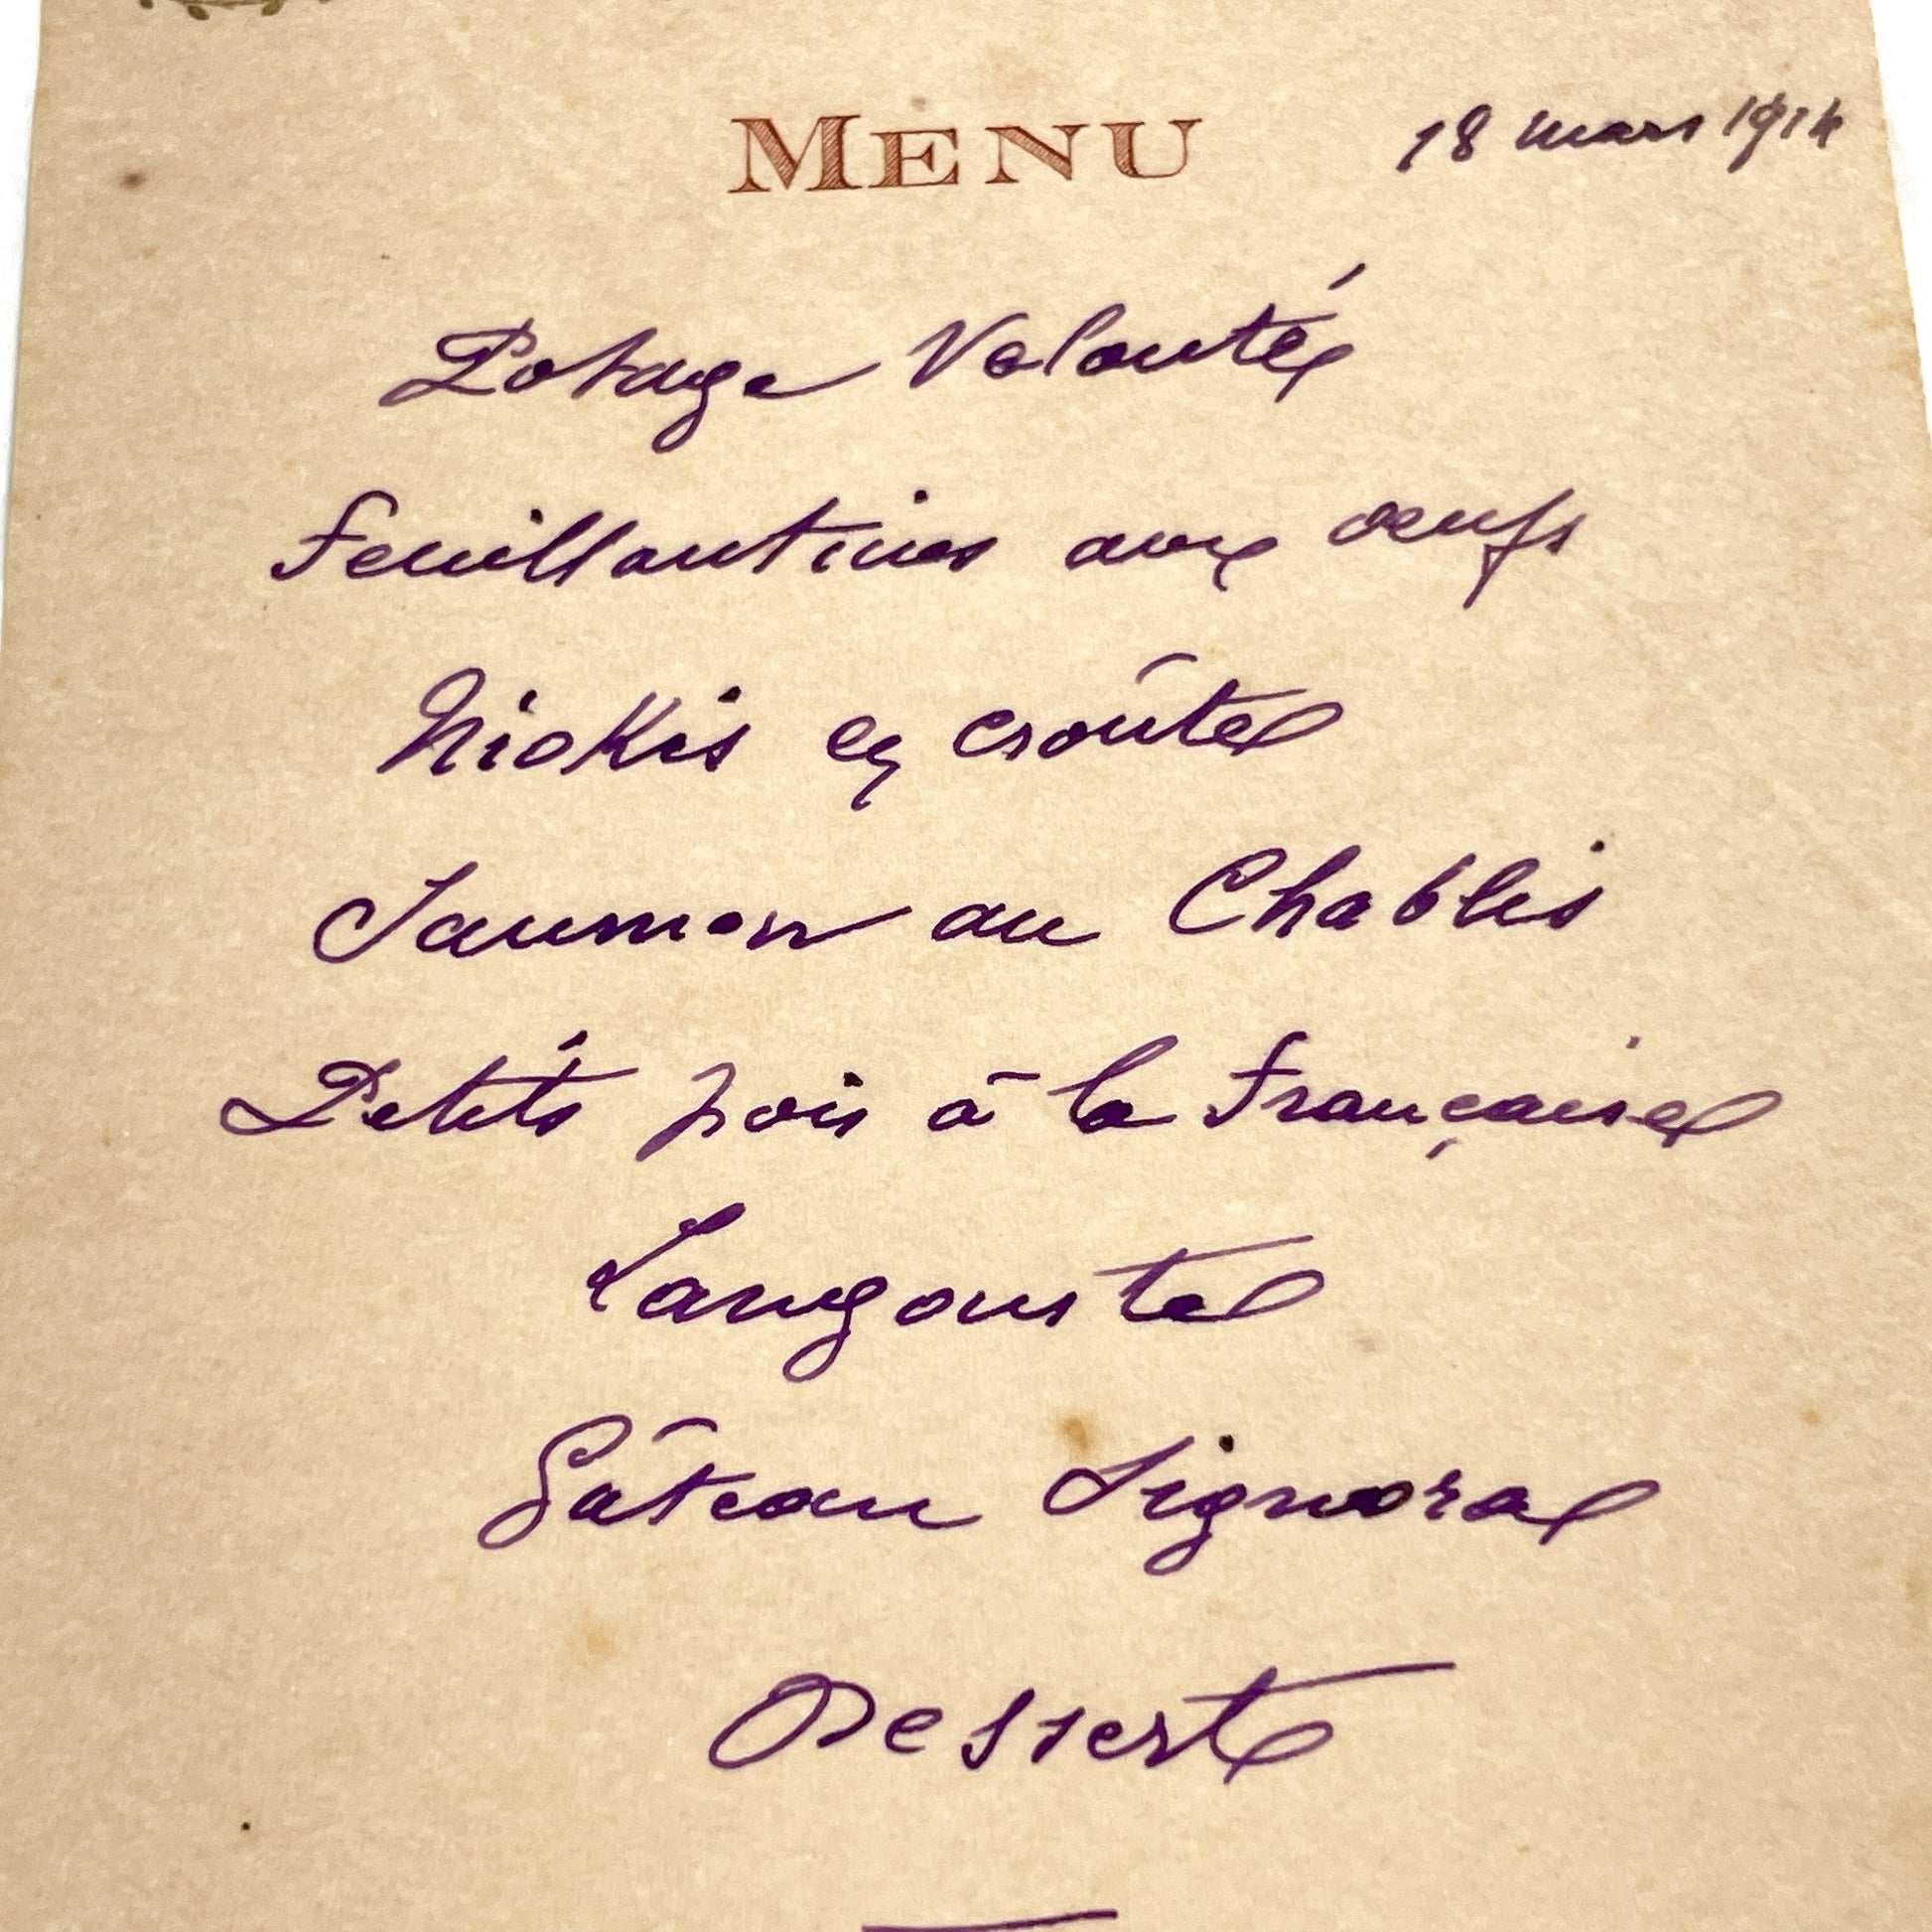 MENU
18 mars 1914
Potage Velouté
Feuillantines aux œufs
Niokis en croûte
Saumon au Chablis
Petits pois à la française
Langouste
Gâteau Signora
Dessert